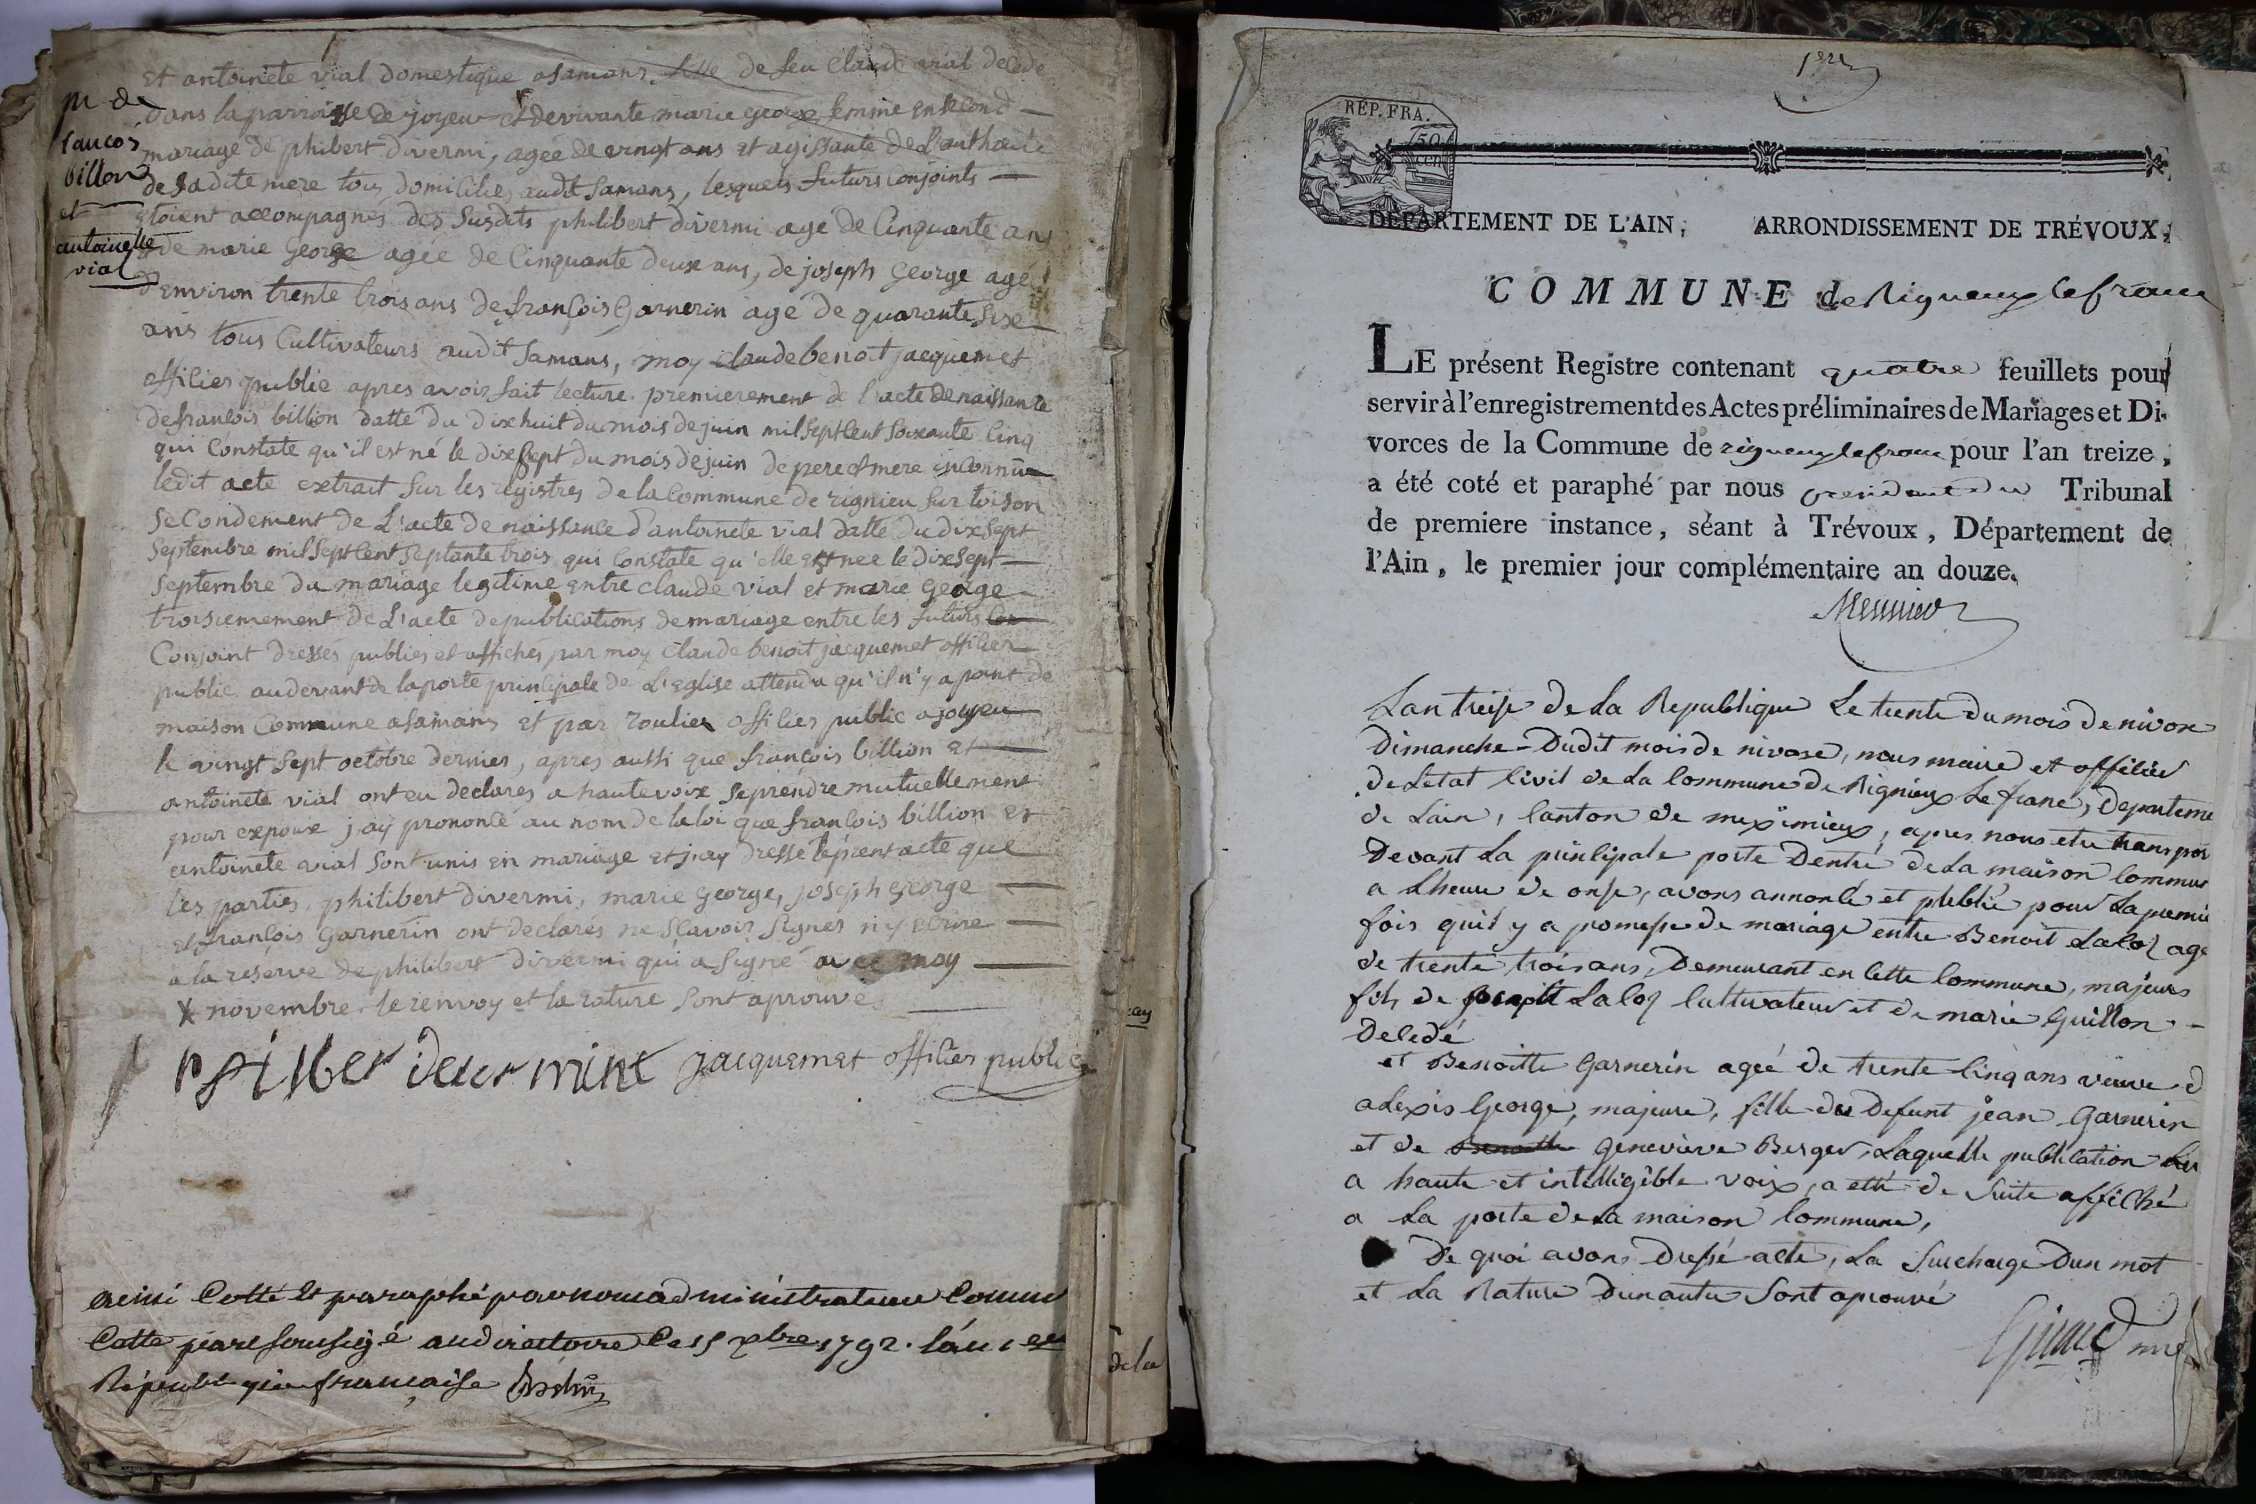 et antoinete vial domestique asamans fille de feu claude vial decede
dans la parroisse de joyeu et de vivante marie george femme en second
mariage de phibert divermi, agée de vingt ans et agissante de l'authorité
de sadite mere tous domiciliés audit samans, lesquels futurs conjoints
etoient accompagnés des susdits philibert divermi age de cinquante ans
de marie george agée de cinquante deux ans, de joseph george agé
d'environ trente trois ans de françois garnerin agé de quarante six
ans tous cultivateurs audit samans, moy claude benoit jacquemet
officier public apres avoir fait lecture premierement de l'acte de naissance
de francois billion datté du dix huit du mois de juin mil sept cent soixante cinq
qui constate qu'il est né le dix sept du mois de juin de pere et mere inconnu
ledit acte extrait sur les registres de la commune de rignieu sur toison
secondement de l'acte de naissance d'antoinete vial datté du dix sept
septembre mil sept cent septante trois qui constate qu'elle est nee le dix sept
septembre du mariage legitime entre claude vial et marie george
troisiemement de l'acte de publications de mariage entre les futurs con
conjoint dressés publiés et affichés par moy claude benoit jacquemet officier
public au devant de la porte principale de l'eglise attendu qu'il n'y a point de
maison commune a samans et par roulier officier public a joyeu
le vingt sept octobre dernier, apres aussi que françois billion et
antoinete vial ont eu declarés a haute voix se prendre mutuellement
pour epoux j'ay prononcé au nom de la loi que françois billion et
antoinete vial sont unis en mariage et j'ay dressé le present acte que
les parties, philibert divermi, marie george, joseph george
et françois garnerin ont declarés ne scavoir signer n'y ecrire
a la reserve de philibert divermi qui a signé avec moy
X novembre. le renvoy et la rature sont aprouvé
jacquemet officier public
M de
francois
billon
et
antoinette
vial
cotté et paraphé par nous administrateur
cette part soussigné au directoire ce 15 xbre 1792. l'an 1er
République française
de la
1er
REP. FRA.
50
cen
DÉPARTEMENT DE L'AIN, ARRONDISSEMENT DE TRÉVOUX,
COMMUNE de Rigneux le franc
LE présent Registre contenant quatre feuillets pour
servir à l'enregistrement des Actes préliminaires de Mariages et Di-
vorces de la Commune de rigneux le franc pour l'an treize,
a été coté et paraphé par nous president du Tribunal
de premiere instance, séant à Trévoux, Département de
l'Ain, le premier jour complémentaire an douze.
Meunier
Lan treise de la Republique Le trente du mois de nivose
Dimanche Dudit mois de nivose, nous maire et officier
de Letat civil de La commune de Rignieux Le franc, Departeme
de Lain, canton de meximieux, apres nous etre transpor
Devant La principale porte Dentré de La maison commune
a Lheure de onse, avons annoncé et publié pour La premie
fois quil y a promesse de mariage entre Benoit Laloz age
de trente trois ans, Demeurant en cette commune, majeur
fils de joseph Laloz cultivateur et de marie Guillon
Decedé
et Benoitte Garnerin ageé de trente cinq ans veuve d
alexis George, majeure, fille du Defunt jean Garnerin
et de Benoitte Genevieve Berger, Laquelle publication Lu
a haute et intelligible voix, a eté de suite affiché
a La porte de La maison commune,
De quoi avons Dressé acte, La surcharge Dun mot
et La Rature Dun autre sont aprouvé